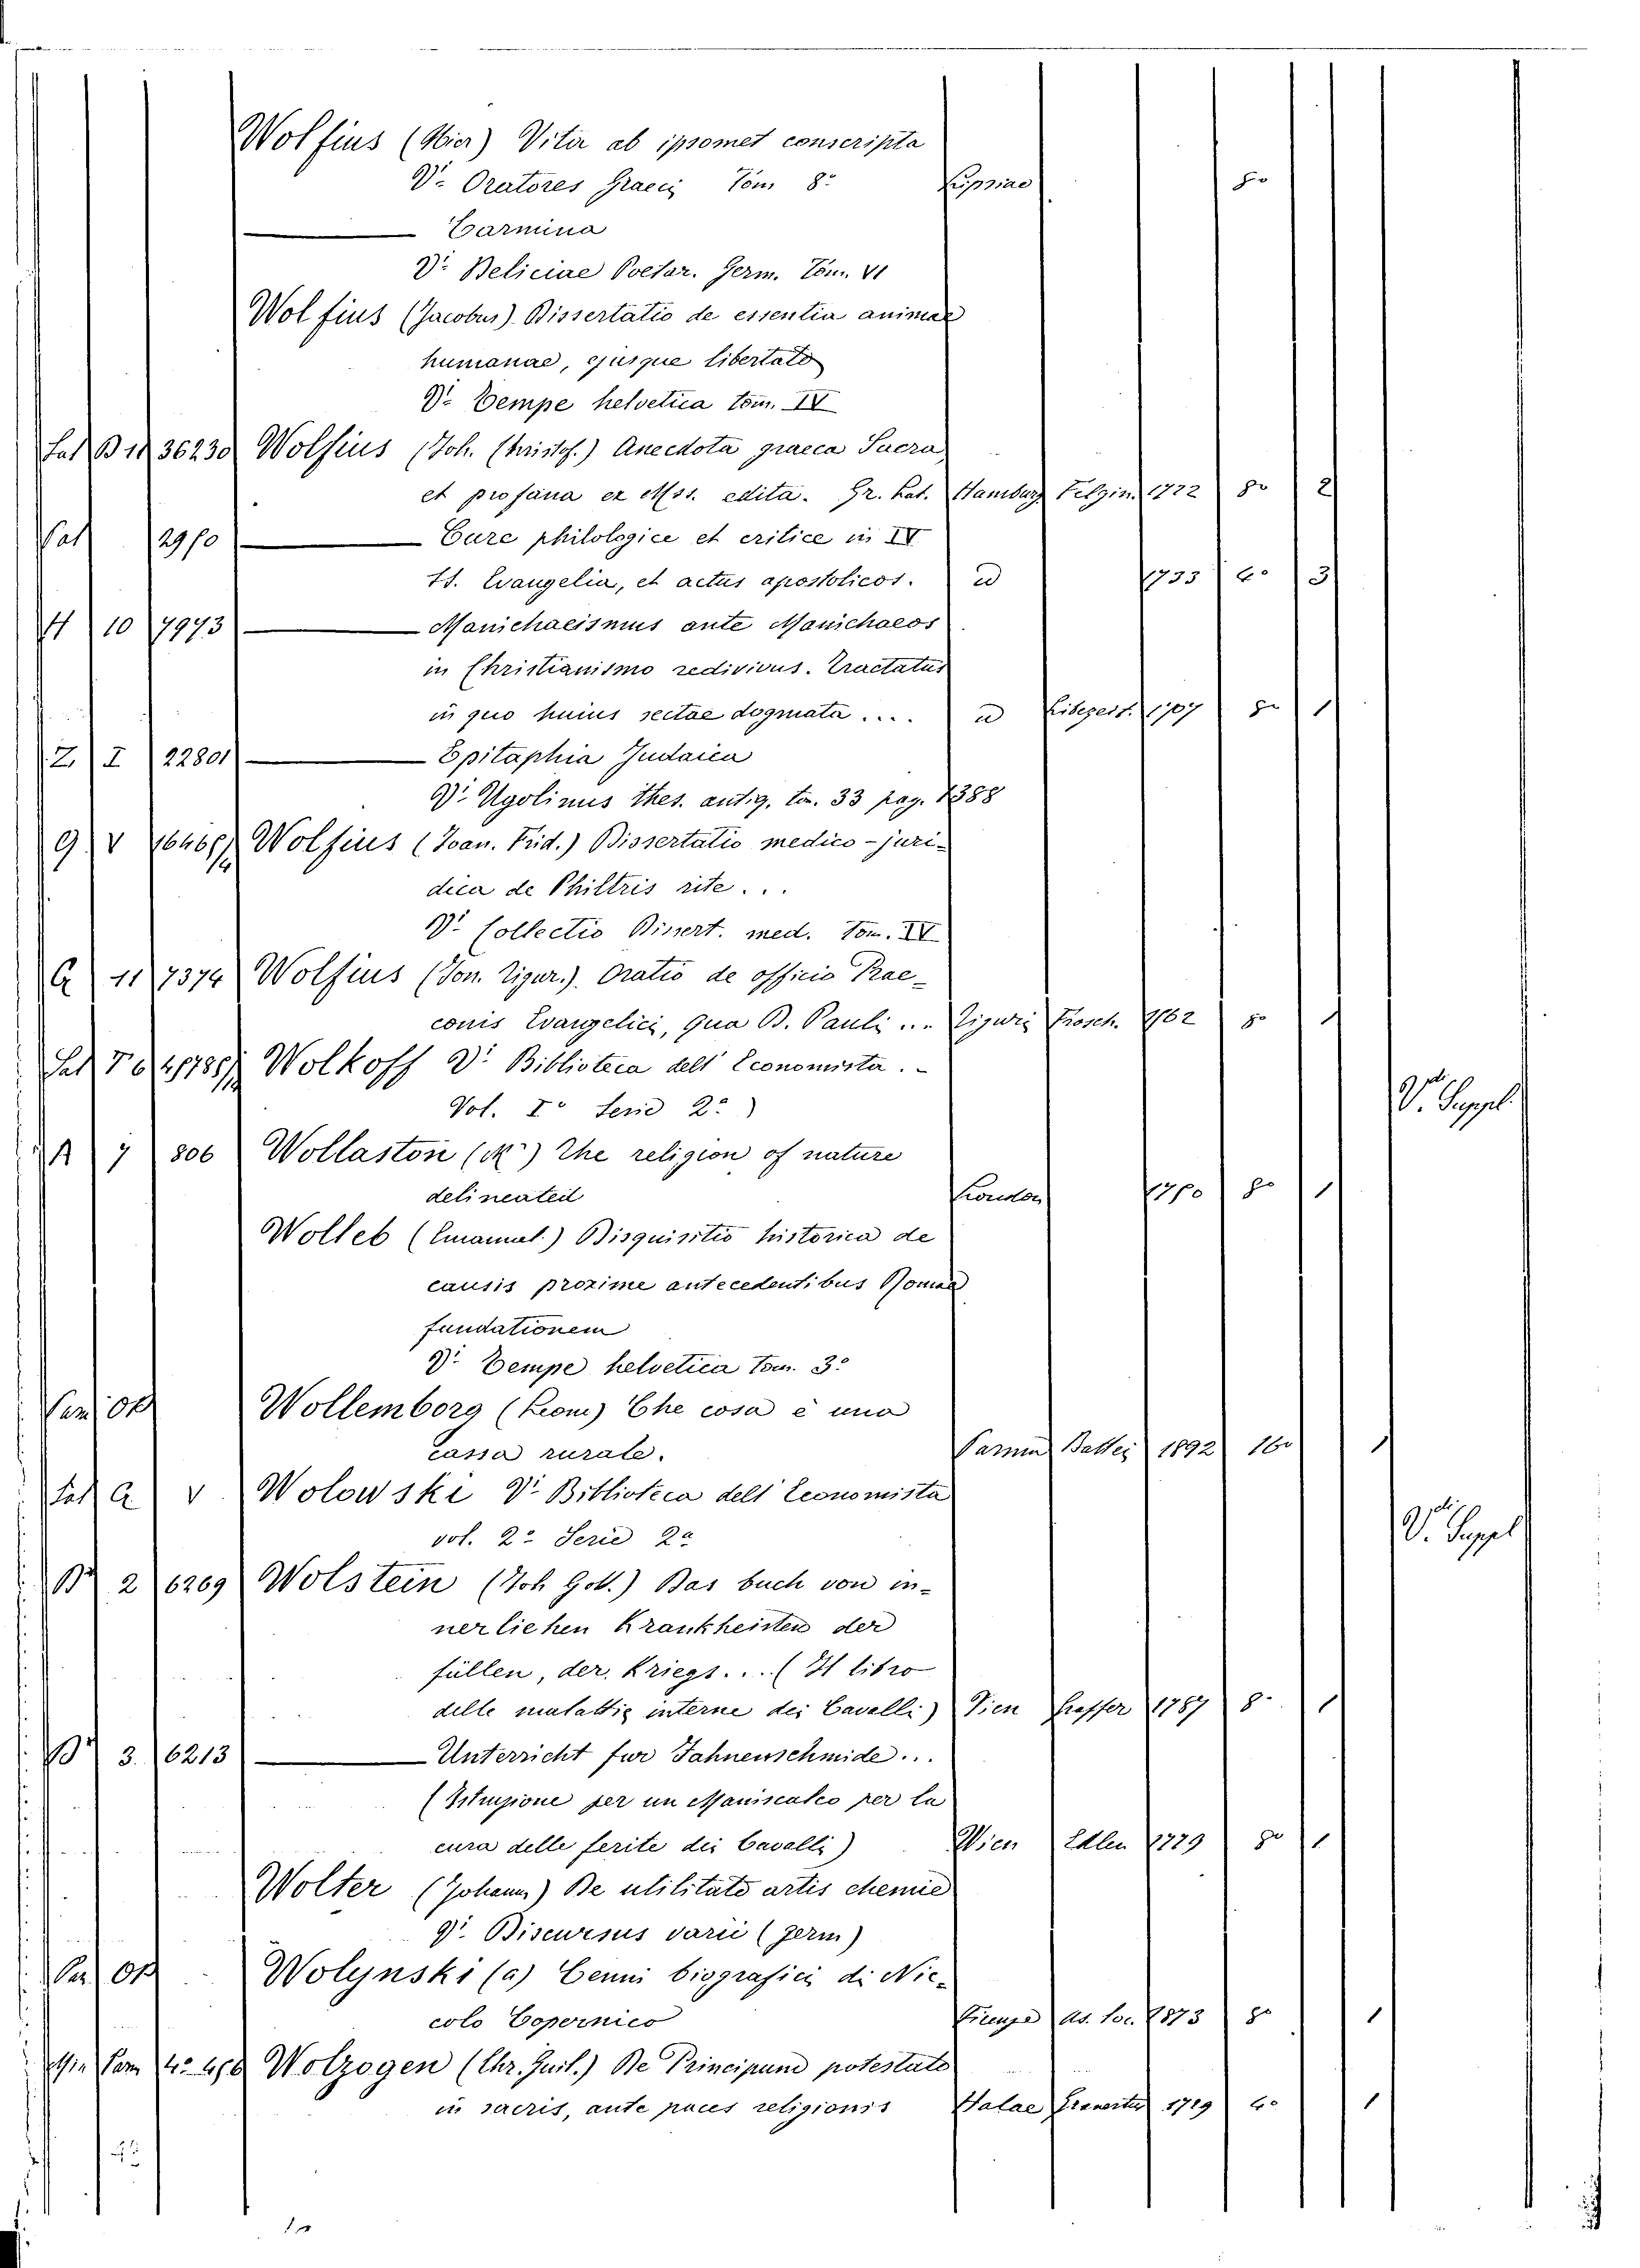 Wolfius (Hier) Vita ab ipsomet conscripta
Vi. Oratores Graeci Tom 8º Lipsiae 8º
Carmina
Vi. Deliciae Poetar. Germ. Tom. VI
Wolfius (Jacobus) Dissertatio de essentia animae
humanae, ejusque libertate
Vi. Tempe helvetica tom. IV
Sal B 11 36230 Wolfius (Joh. Christof.) Anecdota graeca Sacra
et profana ex Mss. edita. Gr. Lat. Hamburg Felgin. 1722 8º 2
Sal Cure philologice et critice in IV
SS. Evangelia, et actus apostolicos. id 1733 4º 3
H 10 7973 Manichaeismus ante Manichaeos
in Christianismo redivivus. Tractatus
in quo huius sectae dogmata .... id Libezeit. 1707 8º 1
Z. I 22801 Epitaphia Judaica
Vi. Ugolinus thes. antiq. to. 33 pag. 1388
G V Wolfius (Joan. Frid.) Dissertatio medico-juri-
dica de Philtris rite...
Vi. Collectio Dissert. med. Tom. IV
11 7374 Wolfius (Jon. Tigur.) Oratio de officio Prae-
conis Evangelici, qua B. Pauli ... Tiguri Frosch. 1562 8º 1
Sal Wolkoff Vi. Biblioteca dell' Economista.
Vol. Iº Serie 2ª
V. Suppl.
A 7 806 Wollaston (Mr) The religion of nature
delineated London 1750 8º 1
Wolleb (Emanuel.) Disquisitio historica de
causis proxime antecedentibus Romae
fundationem
Vi. Tempe helvetica Tom. 3º
Wollemborg (Leone) Che cosa è una
cassa rurale. Parma Battei 1892 16º 1
Sal a V Wolowski Vi. Biblioteca dell' Economista
vol. 2º Serie 2ª
V. Suppl
2 6269 Wolstein (Joh Got.) Das buch von in-
nerlichen Krankheisten der
füllen, der Kriegs.... (Il libro
delle malattie interne dei Cavalli) Vien Graffer 1787 8º 1
3. 6213 Unterricht fur Fahnenschmide...
(Istruzione per un Maniscalco per la
cura delle ferite dei Cavalli) Wien Edlen 1779 8º 1
Wolter (Johann) De utilitate artis chemie
Vi. Discursus varii (Germ)
Wolynski (a) Cenni biografici di Nic-
colo Copernico Firenze As. Soc. 1873 8º 1
Wolzogen (Chr. Guil.) De Principum potestate
in sacris, ante paces religionis Halae 1719 4º 1